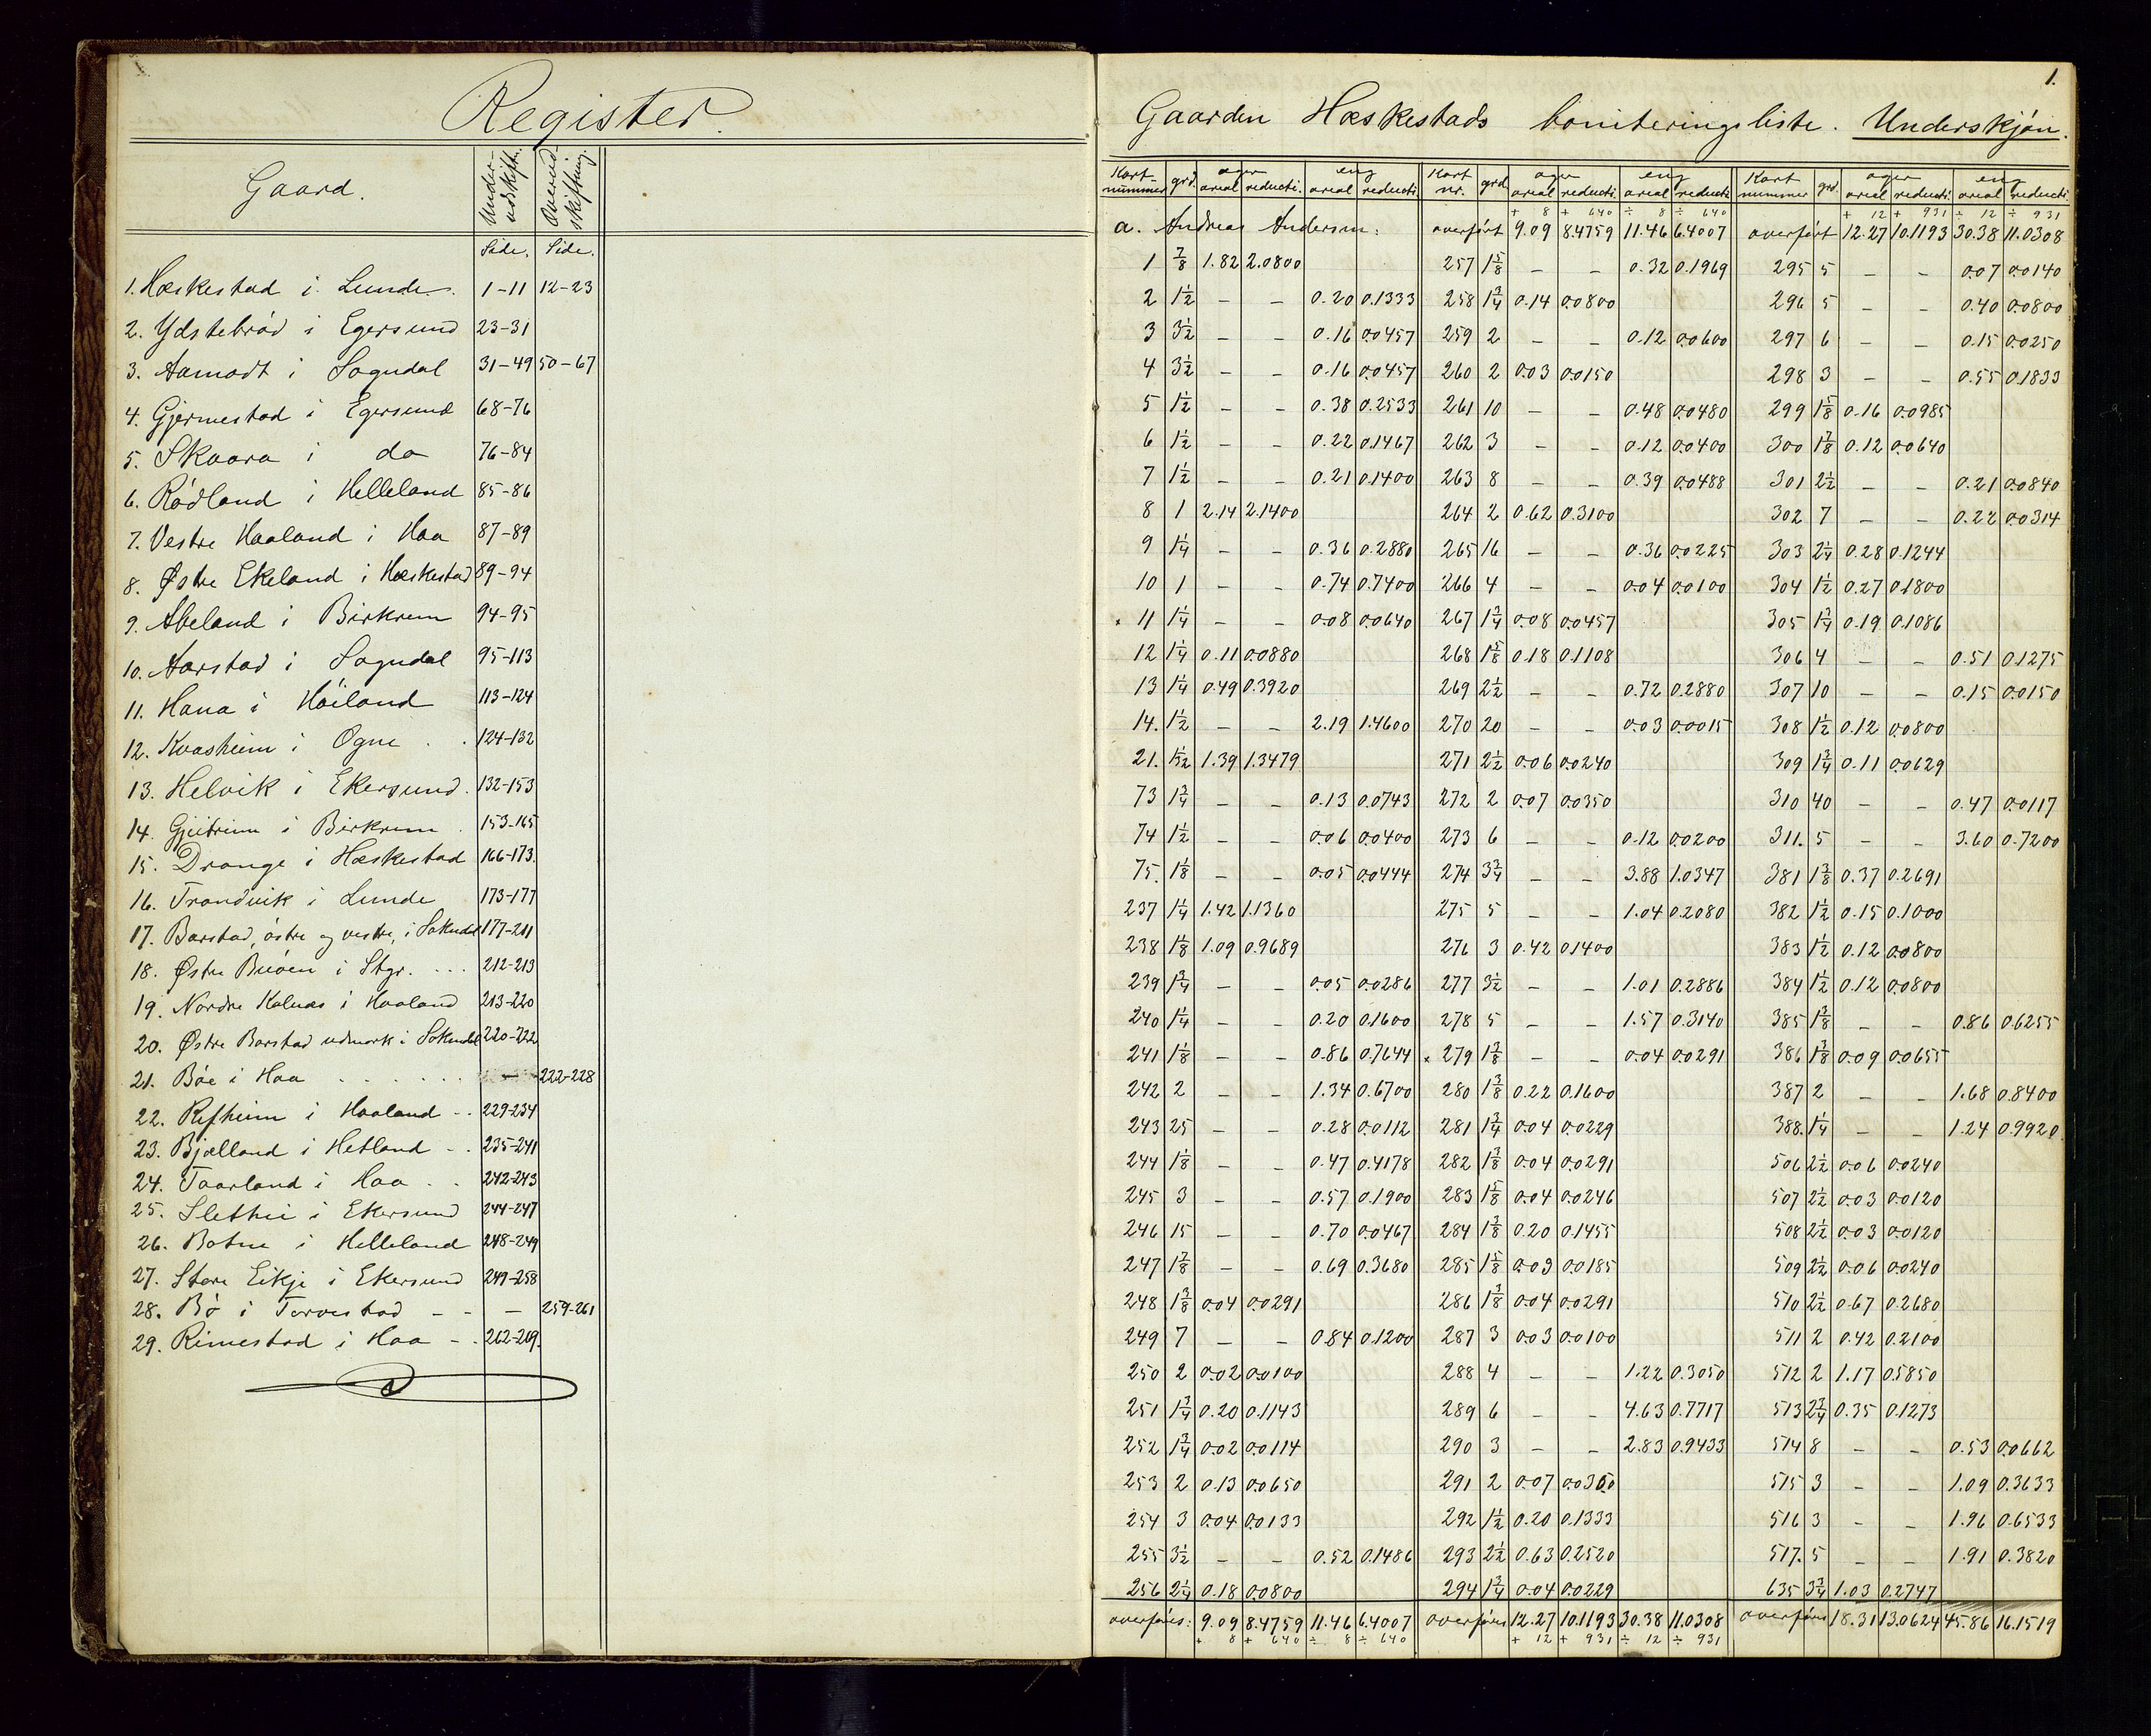 Register.
Gaard. Under-udskift. Overud-skiftning.
Side. Side.
1. Hæskestad i Lunde. 1-11 12-23
2. Ydstebrød i Egersund 23-31
3. Aamodt i Sogndal 31-49 50-67
4. Gjermestad i Egersund 68-76
5. Skaara i do 76-84
6. Rødland i Helleland 85-86
7. Vestre Haaland i Haa 87-89
8. Østre Ekeland i Hæskestad 89-94
9. Abeland i Birkrem 94-95
10. Aarstad i Sogndal 95-113
11. Hana i Høiland 113-124
12. Kvasheim i Ogne . . 124-132
13. Helvik i Ekersund. 132-153
14. Gjeitreim i Birkrem . 153-165
15. Drange i Hæskestad 166-173.
16. Trandvik i Lunde 173-177
17. Barstad, østre og vestre, i Sokndal 177-211
18. Østre Bueøen i Stgr. . . . 212-213
19. Nordre Kalnæs i Haaland 213-220
20. Østre Barstad udmark i Sokndal 220-222
21. Bøe i Haa . . . . . . — 222-228
22. Refheim i Haaland - . 229-234
23. Bjælland i Hetland - . 235-241
24. Taarland i Haa . . 242-243
25. Slethei i Ekersund 244-247
26. Botne i Helleland 248-249
27. Store Eikje i Ekersund 249-258
28. Bø i Torvestad - - — 259-261
29. Rimestad i Haa - . 262-269.
1.
Gaarden Hæskestads boniteringsliste. Underskjøn.
Kart-nummer grd. ager areal reducti. eng areal reducti. Kart nr. grd ager areal reducti. eng areal reducti Kart nummer grd. ager areal reducti. eng areal reducti.
+ 8 + 640 ÷ 8 ÷ 640 + 12 + 931 ÷ 12 ÷ 931
a. Andreas Andersen: overført 9.09 8.4759 11.46 6.4007 overført 12.27 10.1193 30.38 11.0308
1 7/8 1.82 2.0800 257 1 5/8 - - 0.32 0.1969 295 5 - - 0.07 0.0140
2 1 1/2 - - 0.20 0.1333 258 1 3/4 0.14 0.0800 296 5 - - 0.40 0.0800
3 3 1/2 - - 0.16 0.0457 259 2 - - 0.12 0.0600 297 6 - - 0.15 0.0250
4 3 1/2 - - 0.16 0.0457 260 2 0.03 0.0150 298 3 - - 0.55 0.1833
5 1 1/2 - - 0.38 0.2533 261 10 - - 0.48 0.0480 299 1 5/8 0.16 0.0985
6 1 1/2 - - 0.22 0.1467 262 3 - - 0.12 0.0400 300 1 7/8 0.12 0.0640
7 1 1/2 - - 0.21 0.1400 263 8 - - 0.39 0.0488 301 2 1/2 - - 0.21 0.0840
8 1 2.14 2.1400 264 2 0.62 0.3100 302 7 - - 0.22 0.0314
9 1 1/4 - - 0.36 0.2880 265 16 - - 0.36 0.0225 303 2 1/4 0.28 0.1244
10 1 - - 0.74 0.7400 266 4 - - 0.04 0.0100 304 1 1/2 0.27 0.1800
11 1 1/4 - - 0.08 0.0640 267 1 3/4 0.08 0.0457 305 1 3/4 0.19 0.1086
12 1 1/4 0.11 0.0880 268 1 5/8 0.18 0.1108 306 4 - - 0.51 0.1275
13 1 1/4 0.49 0.3920 269 2 1/2 - - 0.72 0.2880 307 10 - - 0.15 0.0150
14. 1 1/2 - - 2.19 1.4600 270 20 - - 0.03 0.0015 308 1 1/2 0.12 0.0800
21. 1 1/32 1.39 1.3479 271 2 1/2 0.06 0.0240 309 1 3/4 0.11 0.0629
73 1 3/4 - - 0.13 0.0743 272 2 0.07 0.0350 310 40 - - 0.47 0.0117
74 1 1/2 - - 0.06 0.0400 273 6 - - 0.12 0.0200 311. 5 - - 3.60 0.7200
75. 1 1/8 - - 0.05 0.0444 274 3 3/4 - - 3.88 1.0347 381 1 3/8 0.37 0.2691
237 1 1/4 1.42 1.1360 275 5 - - 1.04 0.2080 382 1 1/2 0.15 0.1000
238 1 1/8 1.09 0.9689 276 3 0.42 0.1400 383 1 1/2 0.12 0.0800
239 1 3/4 - - 0.05 0.0286 277 3 1/2 - - 1.01 0.2886 384 1 1/2 0.12 0.0800
240 1 1/4 - - 0.20 0.1600 278 5 - - 1.57 0.3140 385 1 3/8 - - 0.86 0.6255
241 1 1/8 - - 0.86 0.7644 279 1 3/8 - - 0.04 0.0291 386 1 3/8 0.09 0.0655
242 2 - - 1.34 0.6700 280 1 3/8 0.22 0.1600 387 2 - - 1.68 0.8400
243 25 - - 0.28 0.0112 281 1 3/4 0.04 0.0229 388. 1 1/4 - - 1.24 0.9920
244 1 1/8 - - 0.47 0.4178 282 1 3/8 0.04 0.0291 506 2 1/2 0.06 0.0240
245 3 - - 0.57 0.1900 283 1 5/8 0.04 0.0246 507 2 1/2 0.03 0.0120
246 15 - - 0.70 0.0467 284 1 3/8 0.20 0.1455 508 2 1/2 0.03 0.0120
247 1 7/8 - - 0.69 0.3680 285 1 5/8 0.03 0.0185 509 2 1/2 0.06 0.0240
248 1 3/8 0.04 0.0291 286 1 3/8 0.04 0.0291 510 2 1/2 0.67 0.2680
249 7 - - 0.84 0.1200 287 3 0.03 0.0100 511 2 0.42 0.2100
250 2 0.02 0.0100 288 4 - - 1.22 0.3050 512 2 1.17 0.5850
251 1 3/4 0.20 0.1143 289 6 - - 4.63 0.7717 513 2 3/4 0.35 0.1273
252 1 3/4 0.02 0.0114 290 3 - - 2.83 0.9433 514 8 - - 0.53 0.0662
253 2 0.13 0.0650 291 2 0.07 0.0350 515 3 - - 1.09 0.3633
254 3 0.04 0.0133 292 1 1/2 0.20 0.1333 516 3 - - 1.96 0.6533
255 3 1/2 - - 0.52 0.1486 293 2 1/2 0.63 0.2520 517. 5 - - 1.91 0.3820
256 2 1/4 0.18 0.0800 294 1 3/4 0.04 0.0229 635 3 3/4 1.03 0.2747
overføres: 9.09 8.4759 11.46 6.4007 overføres 12.27 10.1193 30.38 11.0308 overføres 18.31 13.0624 45.86 16.1519
+ 8 + 640 ÷ 8 ÷ 640 + 12 + 931 ÷ 12 ÷ 931